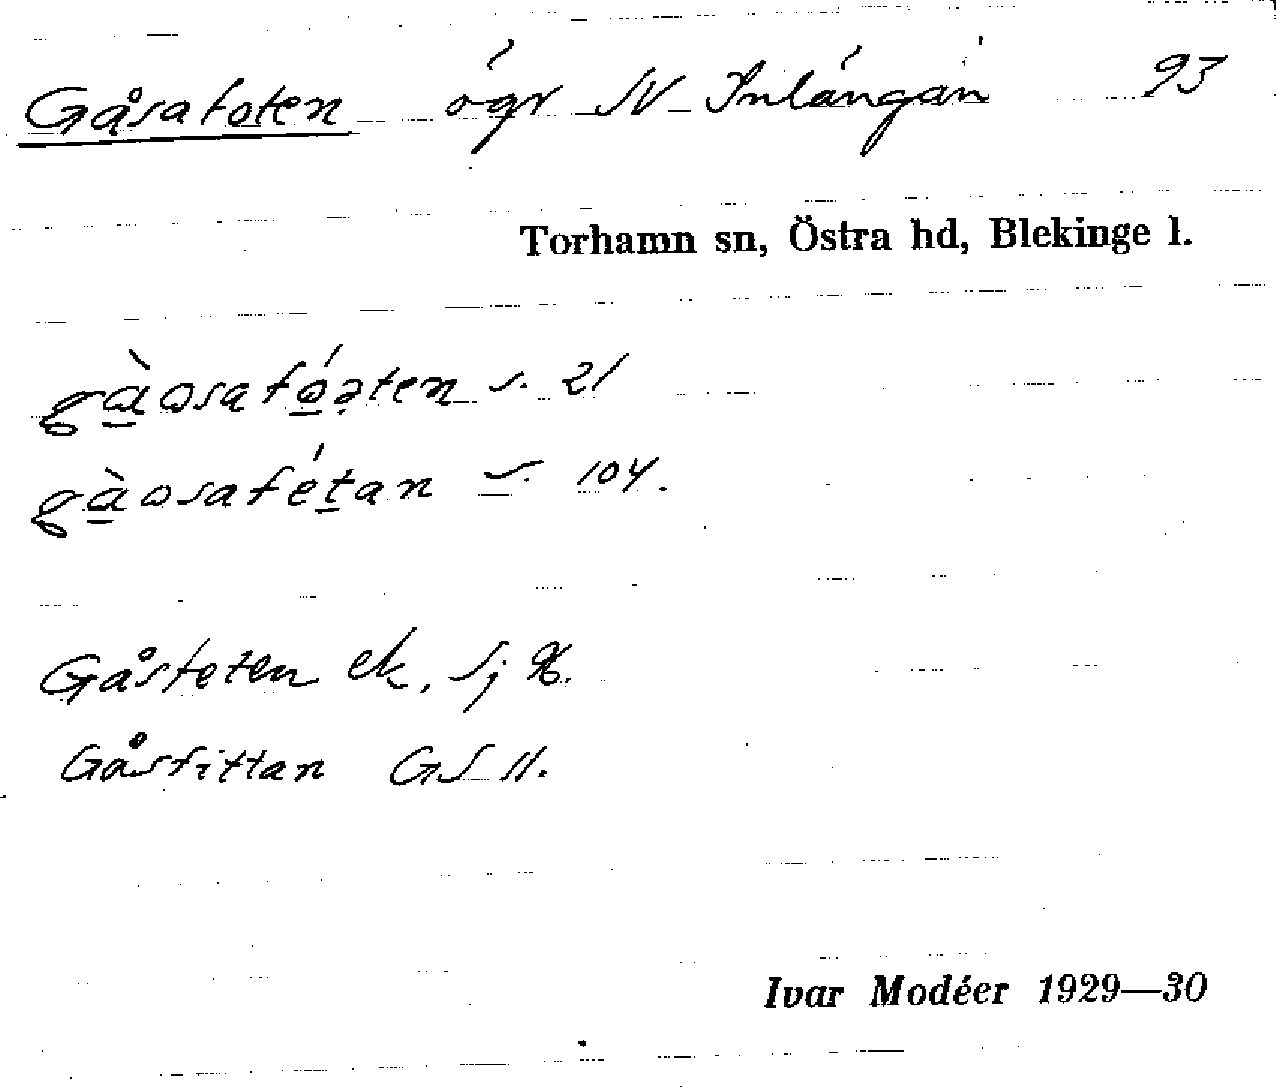 Gåsafoten ögr N Inlångan 93
Torhamn sn, Östra hd, Blekinge l.
gàosafóəten s. 21
gàosafétan s. 104.
Gåsteten ek. sj
Gåsfittan GS 11.
Ivar Modéer 1929—30